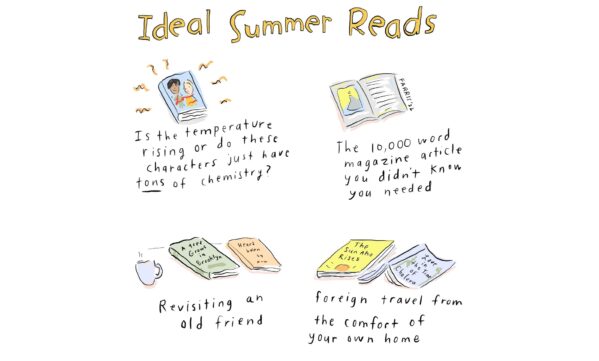 Ideal Summer Reads
Is the temperature
rising or do these
characters just have
tons of chemistry?
The 10,000 word
magazine article
you didn't know
you needed
A Tree
Grows in
Brooklyn
Heart
burn
The
Sun Also
Rises
Love
in the Time
of
Cholera
Revisiting an
old friend
foreign travel from
the comfort of
your own home